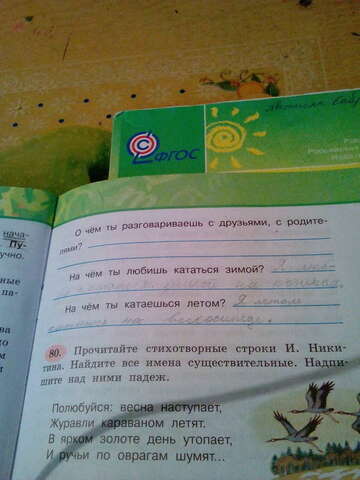 ФГОС
нача-
Пу-
учно.
О чём ты разговариваешь с друзьями, с родите-
лями?
На чём ты любишь кататься зимой? Я
На чём ты катаешься летом? Я летом
катаюсь на велосипеде.
80. Прочитайте стихотворные строки И. Ники-
тина. Найдите все имена существительные. Надпи-
шите над ними падеж.
Полюбуйся: весна наступает,
Журавли караваном летят.
В ярком золоте день утопает,
И ручьи по оврагам шумят...